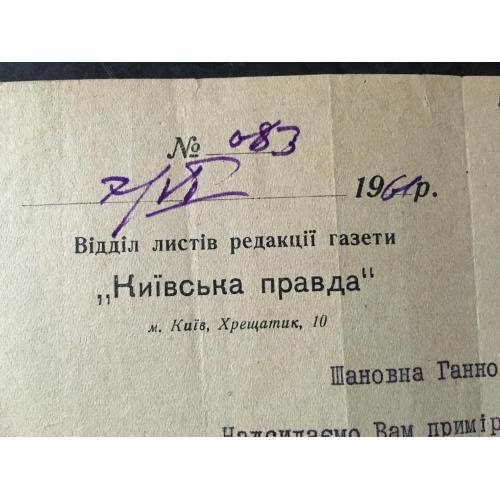 № 083
7/VI 1961 р.
Відділ листів редакції газети
„Київська правда"
м. Київ, Хрещатик, 10
Шановна Ганно
Надсилаємо Вам примір